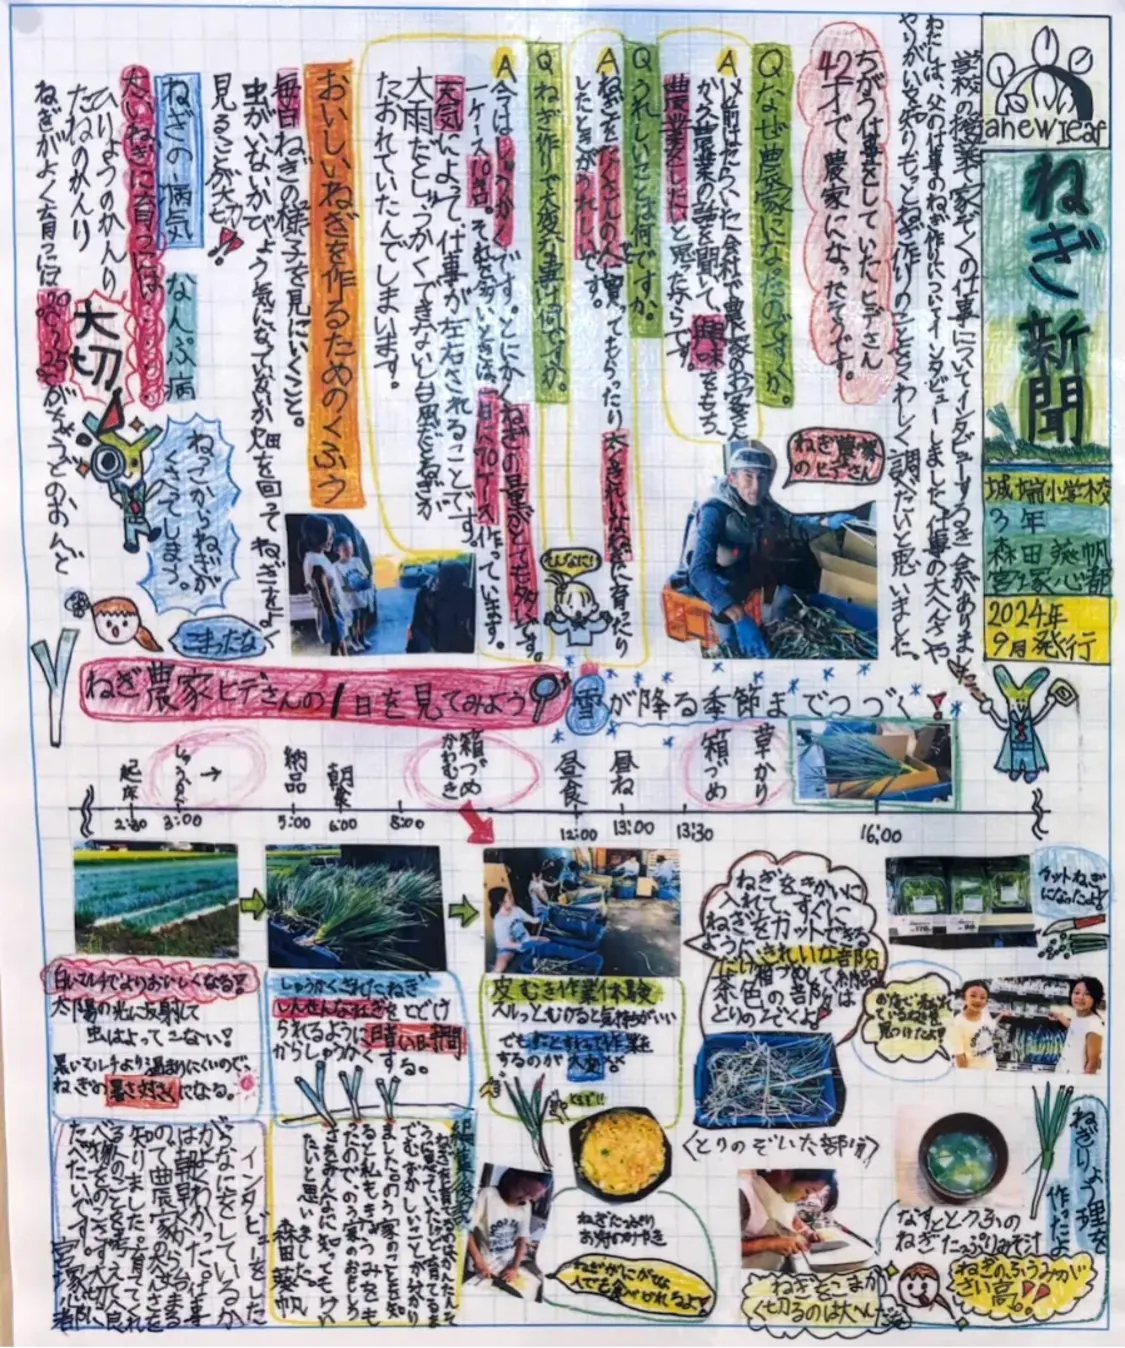 anewleaf
ねぎ新聞
城端小学校
3年
森田葵帆
宮塚心都
2024年
9月発行
学校の授業で家ぞくの仕事についてインタビューをする機会がありました。
わたしは、父の仕事のねぎ作りについてインタビューしました。仕事の大へんさや
やりがいを知りもっとねぎ作りのことをくわしく調べたいと思いました。
ちがう仕事をしていたヒデさん
42才で農家になったそうです。
Qなぜ農家になったのですか。
A以前はたらいた会社で農家のお客さん
から農業の話を聞いて、興味をもち、
農業をしたいと思ったからです。
Qうれしいことは何ですか。
Aねぎをたくさんの人に買ってもらったり
大きくきれいなねぎに育ったり
したときがうれしいです。
Qねぎ作りで大変な事は何ですか。
A今はしゅうかくです。とにかくねぎの量がとても多いです。
一ケース10キロ。それを多いときは、一日に70ケース作っています。
天気によって、仕事が左右されることです。
大雨だとしゅうかくできないし台風だとねぎが
たおれていたんでしまいます。
ねぎ農家
のヒデさん
そんなに!
おいしいねぎを作るためのくふう
毎日ねぎの様子を見にいくこと。
虫がいないかびょう気になっていないか畑を回ってねぎをよく
見ることが大切!!
ねぎの病気 なんぷ病
ねっこからねぎが
くさってしまう。
こまったな
太いねぎに育つには…
ひりょうのかんり
たねのかんり
大切
ねぎがよく育つには20℃~25℃がちょうどのおんど
ねぎ農家ヒデさんの1日を見てみよう
雪が降る季節までつづく!
起床
しゅうかく→
納品
朝食
箱づめ
かわむき
昼食
昼ね
箱づめ
草かり
2:30
3:00
5:00
6:00
8:00
12:00
13:00
13:30
16:00
白いマルチでよりおいしくなる!
太陽の光に反射して
虫はよってこない!
黒いマルチより温まりにくいので、
ねぎの暑さ対さくになる。
しゅうかくされたねぎ
しんせんなねぎをとどけ
られるように暗い時間
からしゅうかくする。
皮むき作業体験
スルっとむけると気持ちがいい
でもたとすわって作業
するのが大変
ねぎをきかいに
入れてすぐに
ねぎをカットできる
ようにきれいな部分
だけ箱づめして納品。
茶色の部分は
とりのぞくよ!
〈とりのぞいた部分〉
カットねぎ
になったよ!
お店で売られ
ているねぎを
見つけたよ!
ねぎりょう理を
作ったよ
なすととうふの
ねぎたっぷりみそ汁
ねぎのふうみが
さい高!!
ねぎをこまか
く切るのは大へんだ
ねぎたっぷり
お好みやき
編集後記
森田葵帆
インタビューをした